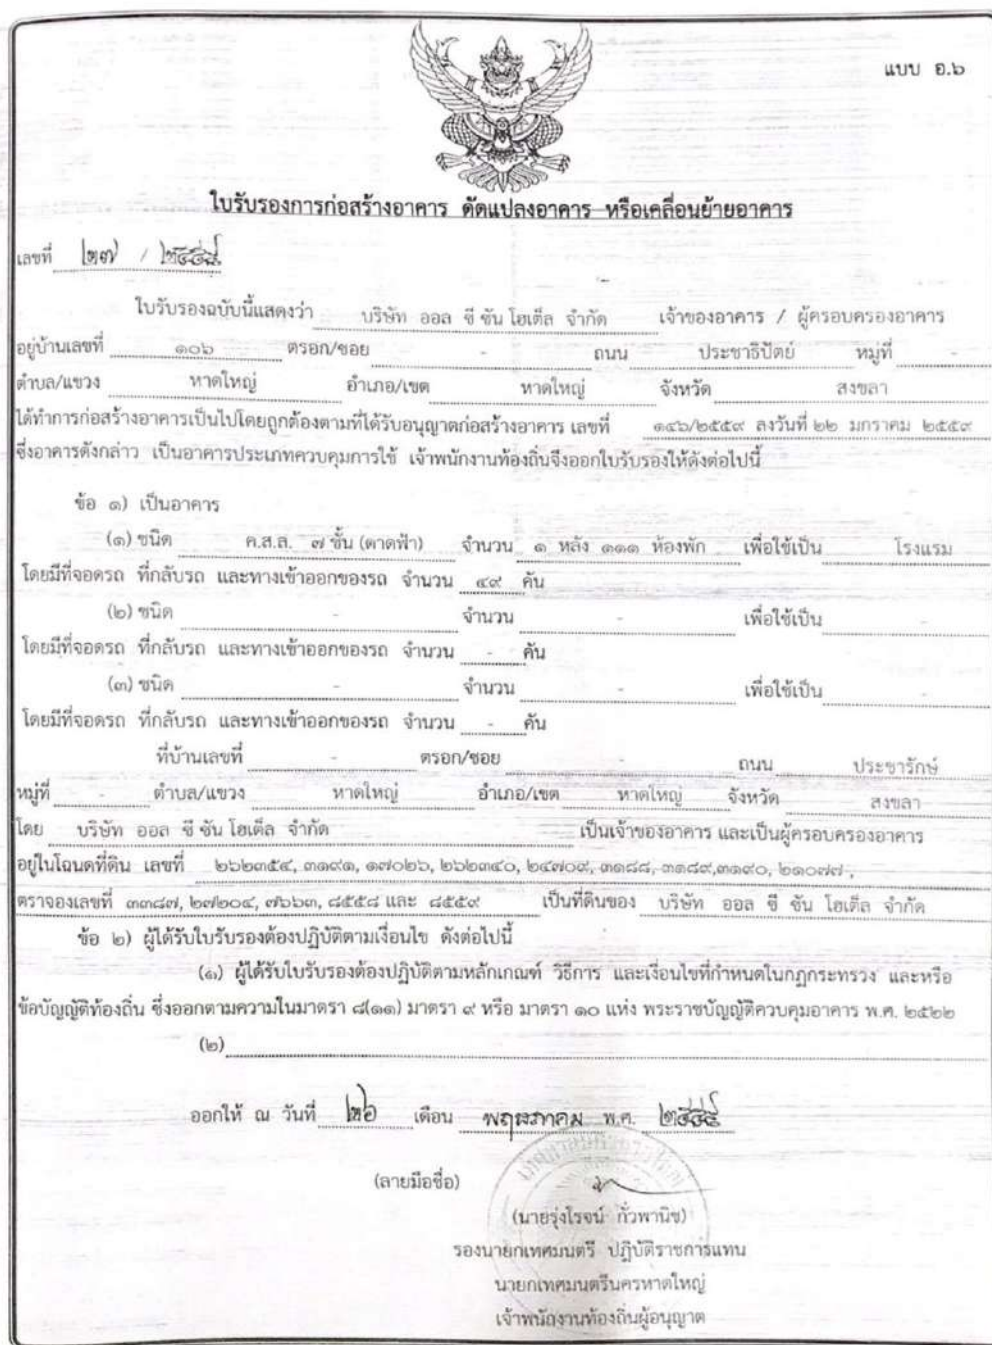 แบบ อ.๖
ใบรับรองการก่อสร้างอาคาร ดัดแปลงอาคาร หรือเคลื่อนย้ายอาคาร
เลขที่ ๒๗ / ๒๕๕๙
ใบรับรองฉบับนี้แสดงว่า บริษัท ออล ซี ซัน โฮเต็ล จำกัด เจ้าของอาคาร / ผู้ครอบครองอาคาร
อยู่บ้านเลขที่ ๑๐๖ ตรอก/ซอย - ถนน ประชาธิปัตย์ หมู่ที่ -
ตำบล/แขวง หาดใหญ่ อำเภอ/เขต หาดใหญ่ จังหวัด สงขลา
ได้ทำการก่อสร้างอาคารเป็นไปโดยถูกต้องตามที่ได้รับอนุญาตก่อสร้างอาคาร เลขที่ ๑๔๖/๒๕๕๙ ลงวันที่ ๒๒ มกราคม ๒๕๕๙
ซึ่งอาคารดังกล่าว เป็นอาคารประเภทควบคุมการใช้ เจ้าพนักงานท้องถิ่นจึงออกใบรับรองให้ดังต่อไปนี้
ข้อ ๑) เป็นอาคาร
(๑) ชนิด ค.ส.ล. ๗ ชั้น (ดาดฟ้า) จำนวน ๑ หลัง ๑๑๑ ห้องพัก เพื่อใช้เป็น โรงแรม
โดยมีที่จอดรถ ที่กลับรถ และทางเข้าออกของรถ จำนวน ๔๙ คัน
(๒) ชนิด - จำนวน - เพื่อใช้เป็น -
โดยมีที่จอดรถ ที่กลับรถ และทางเข้าออกของรถ จำนวน - คัน
(๓) ชนิด - จำนวน - เพื่อใช้เป็น -
โดยมีที่จอดรถ ที่กลับรถ และทางเข้าออกของรถ จำนวน - คัน
ที่บ้านเลขที่ - ตรอก/ซอย - ถนน ประชารักษ์
หมู่ที่ - ตำบล/แขวง หาดใหญ่ อำเภอ/เขต หาดใหญ่ จังหวัด สงขลา
โดย บริษัท ออล ซี ซัน โฮเต็ล จำกัด เป็นเจ้าของอาคาร และเป็นผู้ครอบครองอาคาร
อยู่ในโฉนดที่ดิน เลขที่ ๒๖๒๓๕๔, ๓๑๙๑, ๑๗๐๒๖, ๒๖๒๓๔๐, ๒๔๗๐๙, ๓๑๘๘, ๓๑๘๙,๓๑๙๐, ๒๑๐๗๗ ,
ตราจองเลขที่ ๓๓๘๗, ๒๗๒๐๔, ๗๖๖๓, ๘๕๕๘ และ ๘๕๕๙ เป็นที่ดินของ บริษัท ออล ซี ซัน โฮเต็ล จำกัด
ข้อ ๒) ผู้ได้รับใบรับรองต้องปฏิบัติตามเงื่อนไข ดังต่อไปนี้
(๑) ผู้ได้รับใบรับรองต้องปฏิบัติตามหลักเกณฑ์ วิธีการ และเงื่อนไขที่กำหนดในกฎกระทรวง และหรือ
ข้อบัญญัติท้องถิ่น ซึ่งออกตามความในมาตรา ๘(๑๑) มาตรา ๙ หรือ มาตรา ๑๐ แห่ง พระราชบัญญัติควบคุมอาคาร พ.ศ. ๒๕๒๒
(๒)
ออกให้ ณ วันที่ ๒๖ เดือน พฤษภาคม พ.ศ. ๒๕๕๙
(ลายมือชื่อ)
(นายรุ่งโรจน์ กั่วพานิช)
รองนายกเทศมนตรี ปฏิบัติราชการแทน
นายกเทศมนตรีนครหาดใหญ่
เจ้าพนักงานท้องถิ่นผู้อนุญาต